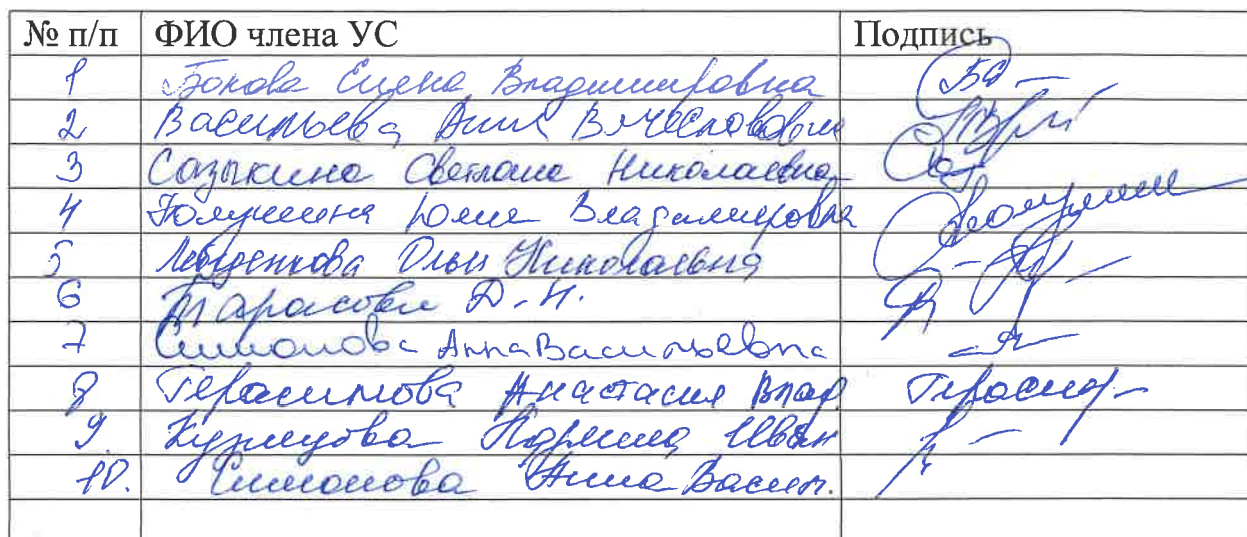 № п/п ФИО члена УС Подпись
1 Бокова Елена Владимировна
2 Васильева Анна Вячеславовна
3 Сазыкина Светлана Николаевна
4 Юлия Владимировна
5 Ольга Николаевна
6 Тарасова Д.Н.
7 Симонова Анна Васильевна
8 Герасимова Анастасия Влад Герасим
9 Кузнецова Иван
10. Симонова Анна Васил.